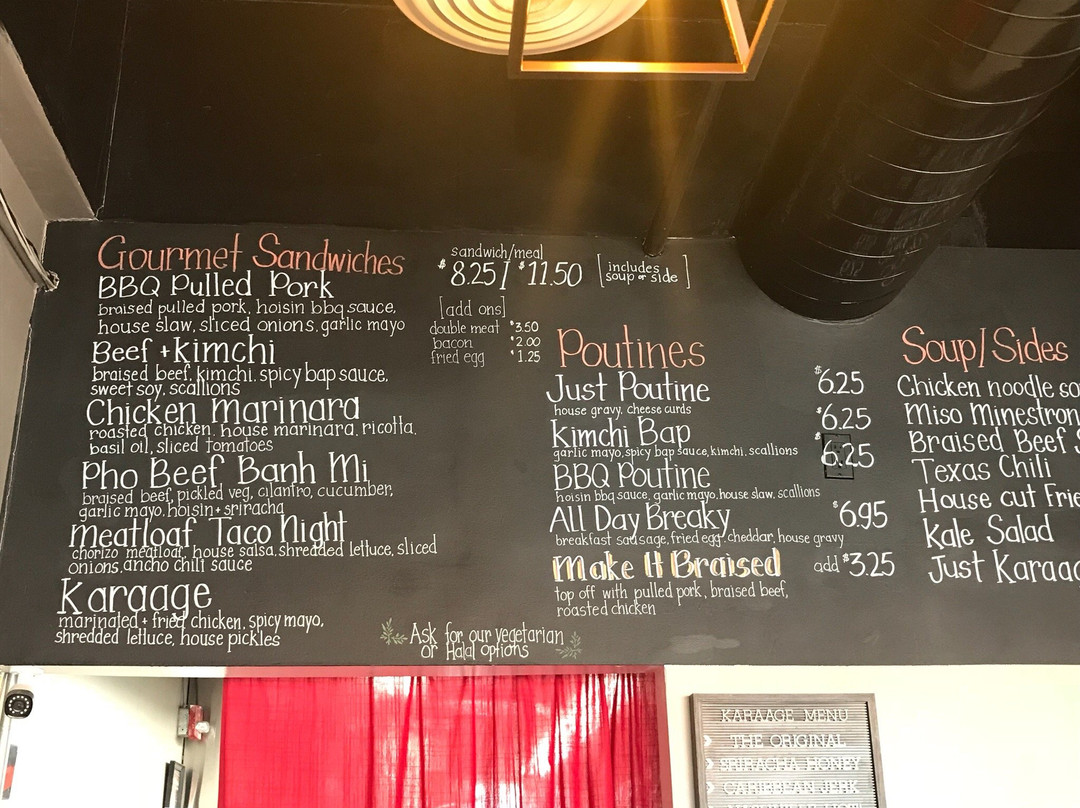 Gourmet Sandwiches
BBQ Pulled Pork
braised pulled pork, hoisin bbq sauce,
house slaw, sliced onions, garlic mayo
Beef + kimchi
braised beef, kimchi, spicy bap sauce,
sweet soy, scallions
Chicken Marinara
roasted chicken, house marinara, ricotta,
basil oil, sliced tomatoes
Pho Beef Banh Mi
braised beef, pickled veg, cilantro, cucumber,
garlic mayo, hoisin + sriracha
Meatloaf Taco Night
chorizo meatloaf, house salsa, shredded lettuce, sliced
onions, ancho chili sauce
Karaage
marinated + fried chicken, spicy mayo,
shredded lettuce, house pickles
sandwich/meal
$8.25 / $11.50 [includes
soup or side]
[add ons]
double meat $3.50
bacon $2.00
fried egg $1.25
Ask for our vegetarian
or Halal options
Poutines
Just Poutine $6.25
house gravy, cheese curds
Kimchi Bap $6.25
garlic mayo, spicy bap sauce, kimchi, scallions
BBQ Poutine $6.25
hoisin bbq sauce, garlic mayo, house slaw, scallions
All Day Breaky $6.95
breakfast sausage, fried egg, cheddar, house gravy
Make It Braised add $3.25
top off with pulled pork, braised beef,
roasted chicken
Soup/Sides
Chicken noodle so
Miso Minestron
Braised Beef S
Texas Chili
House cut Frie
Kale Salad
Just Karaag
KARAAGE MENU
THE ORIGINAL
SRIRACHA HONEY
CARIBBEAN JERK